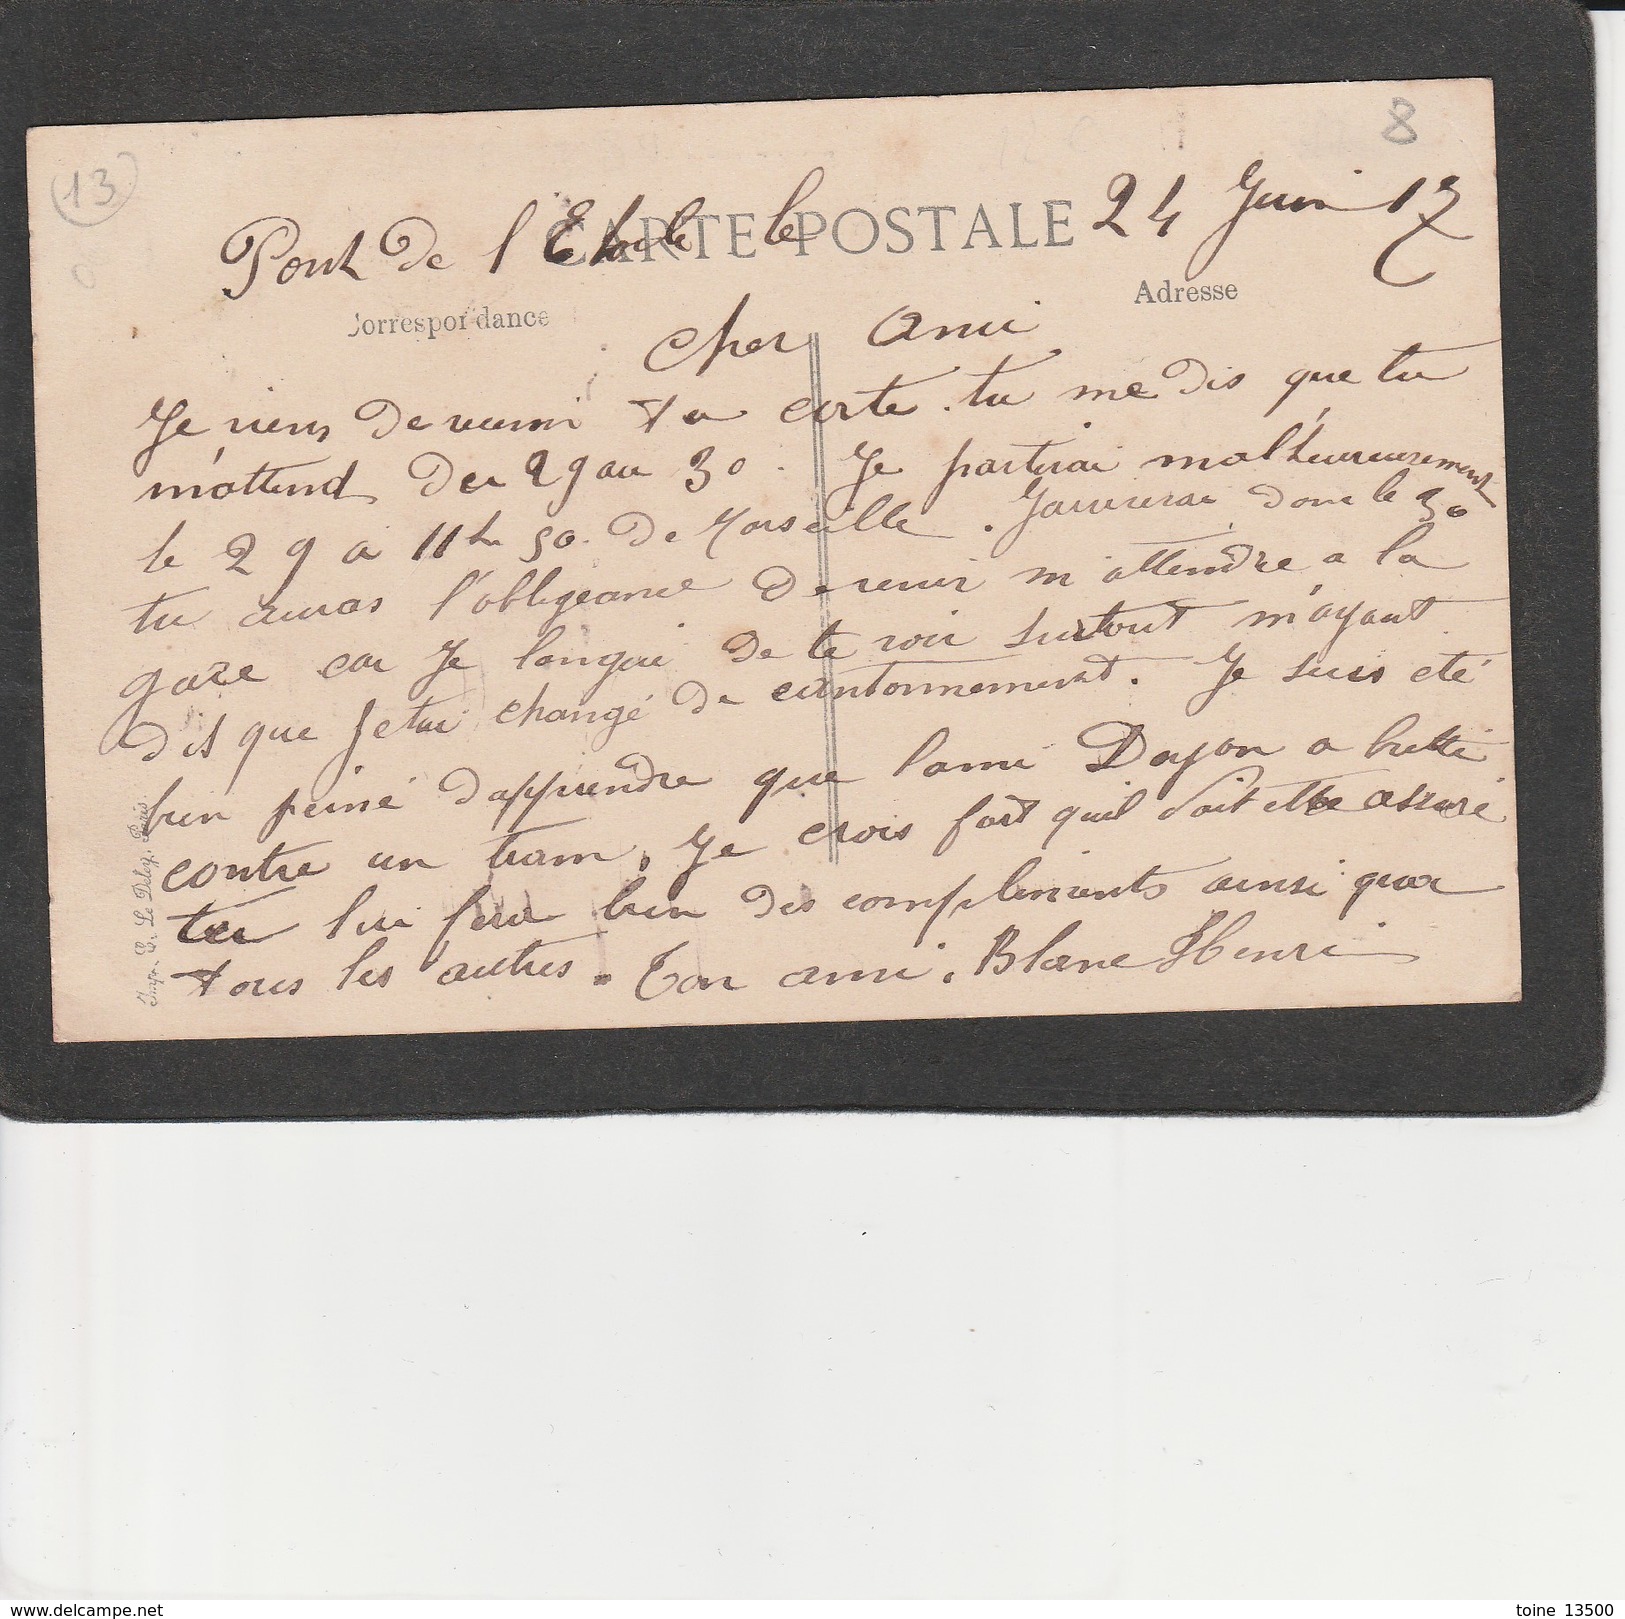 13
8
CARTE POSTALE
Pont de l'Etoile le 24 Juin 17
Correspondance
Adresse
Cher Ami
Je viens de recevoir ta carte. tu me dis que tu
m'attend du 29 au 30. Je partirai malheureusement
le 29 a 11h 50. de Marseille. Jarriverai donc le 30
tu auras l'obligeance de venir m'attendre a la
gare car Je langui de te voir surtout m'ayant
dit que Jetai changé de cantonnement. Je suis eté
bien peiné d'apprendre que lami Doyon a butté
contre un tram. Je crois fort quil doit etre assuré
tu lui fera bien des compliments ainsi qua
tous les autres. Ton ami. Blanc Henri
Imp. E. Le Deley, Paris.
www.delcampe.net
toine 13500